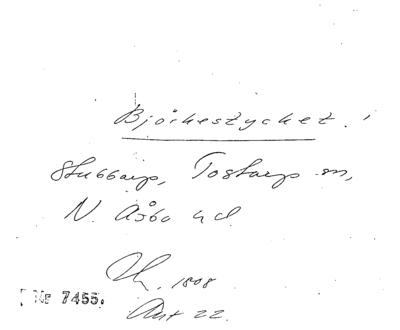 Björkestycket.
Stubbarp, Tostarps sn,
N. Åsbo hd
1808
Nr 7455.
Akt 22.